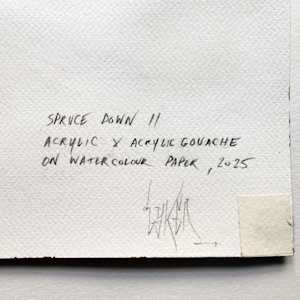 SPRUCE DOWN II
ACRYLIC & ACRYLIC GOUACHE
ON WATERCOLOUR PAPER, 2025